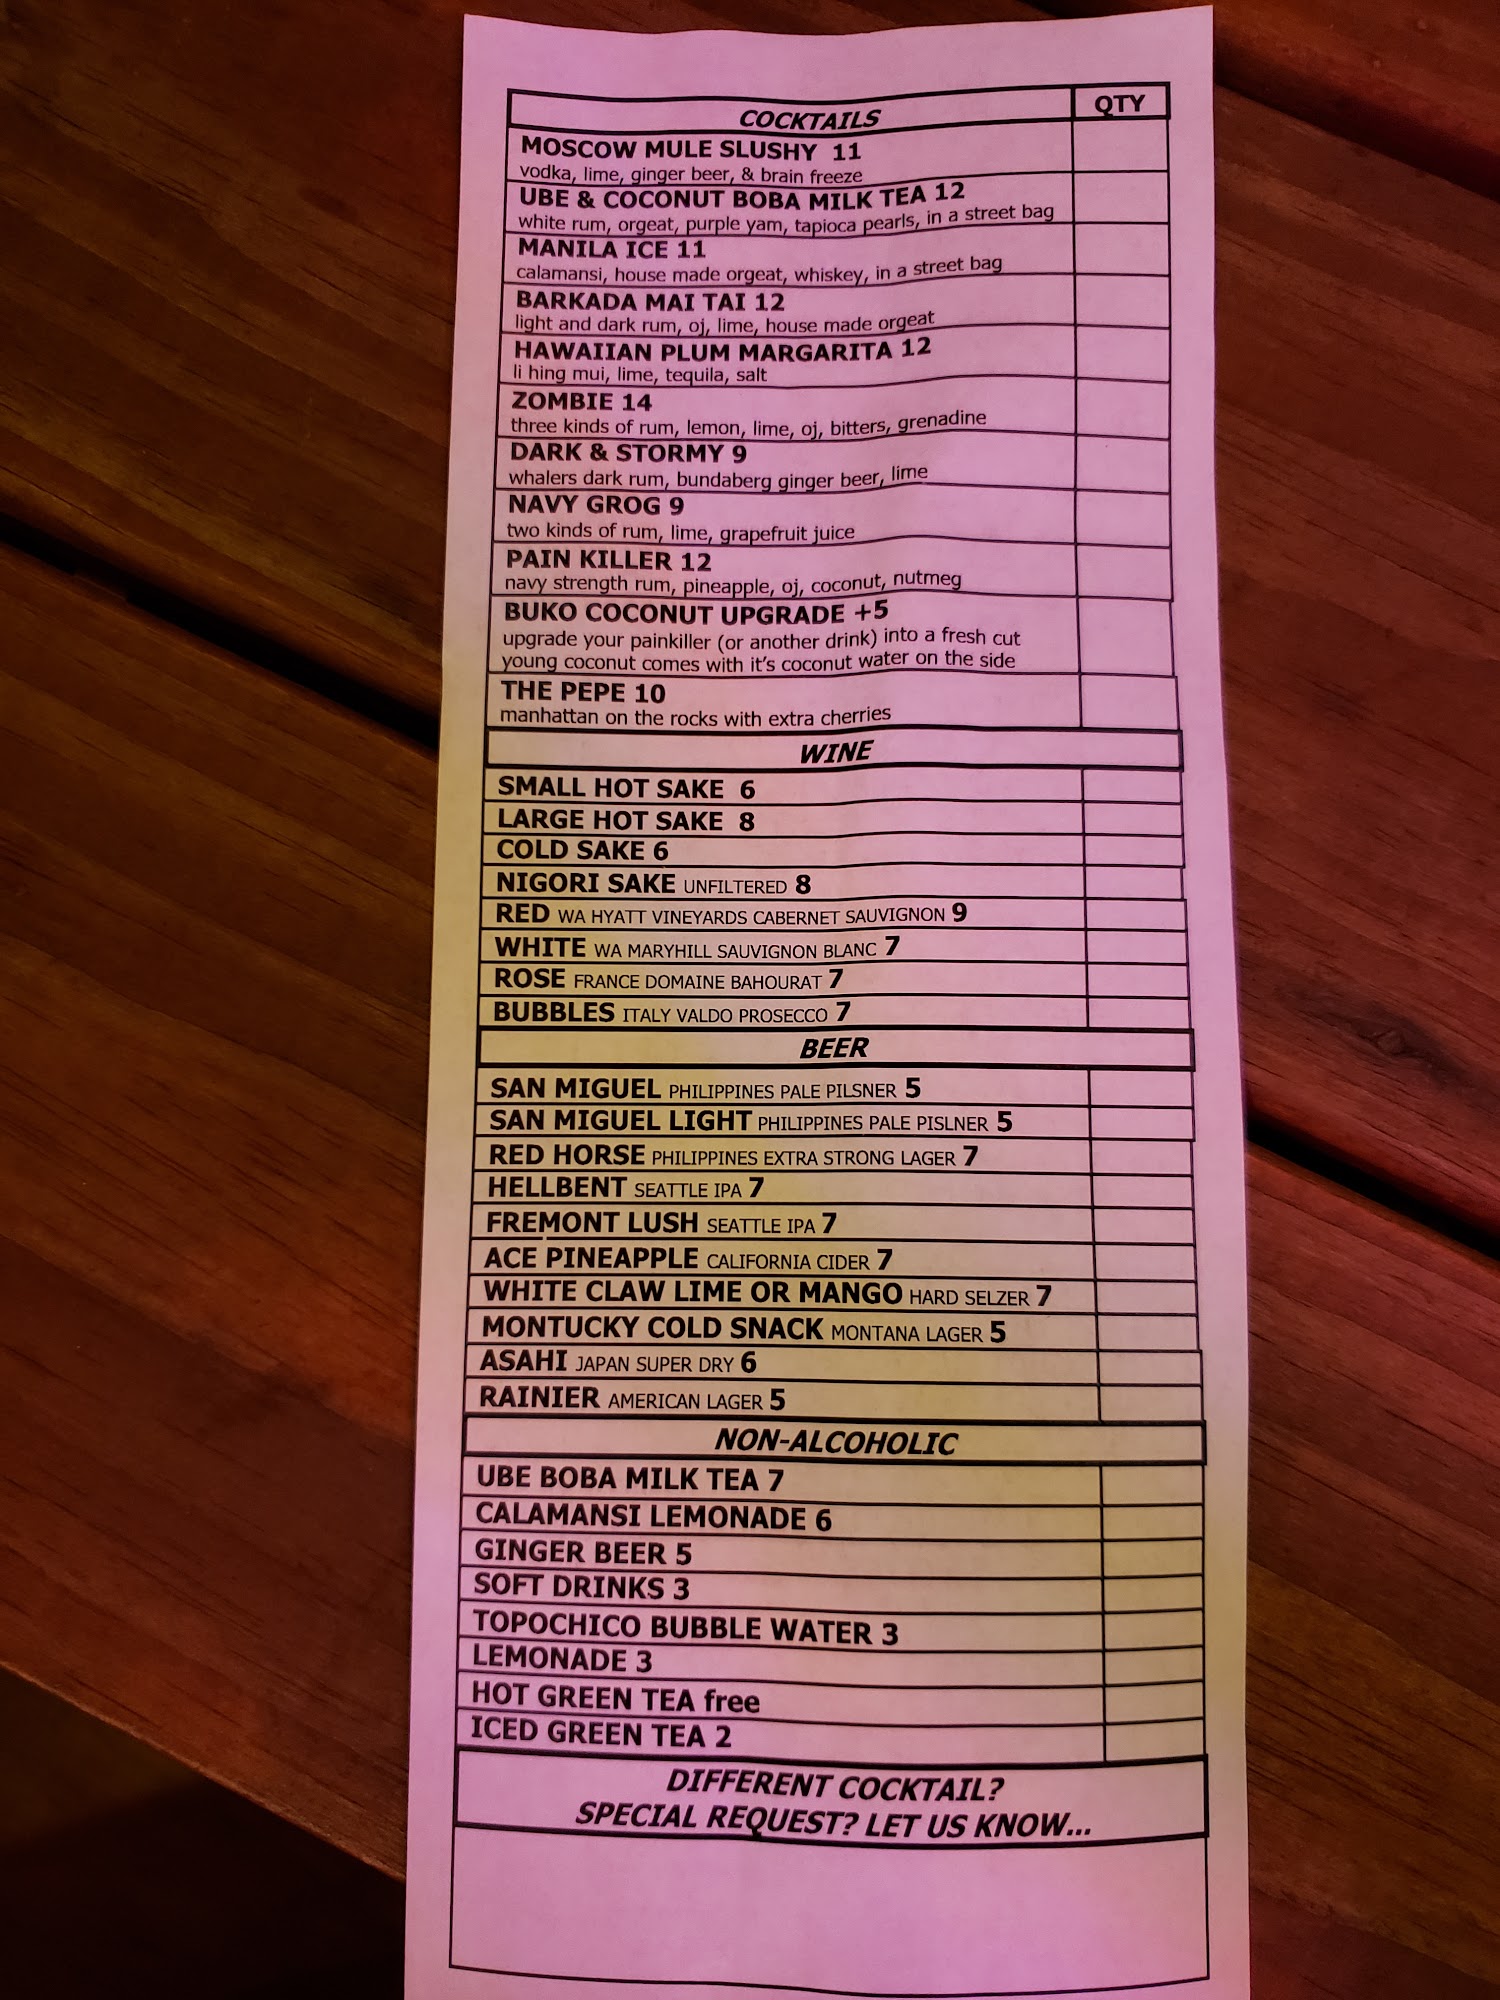 COCKTAILS QTY
MOSCOW MULE SLUSHY 11
vodka, lime, ginger beer, & brain freeze
UBE & COCONUT BOBA MILK TEA 12
white rum, orgeat, purple yam, tapioca pearls, in a street bag
MANILA ICE 11
calamansi, house made orgeat, whiskey, in a street bag
BARKADA MAI TAI 12
light and dark rum, oj, lime, house made orgeat
HAWAIIAN PLUM MARGARITA 12
li hing mui, lime, tequila, salt
ZOMBIE 14
three kinds of rum, lemon, lime, oj, bitters, grenadine
DARK & STORMY 9
whalers dark rum, bundaberg ginger beer, lime
NAVY GROG 9
two kinds of rum, lime, grapefruit juice
PAIN KILLER 12
navy strength rum, pineapple, oj, coconut, nutmeg
BUKO COCONUT UPGRADE +5
upgrade your painkiller (or another drink) into a fresh cut
young coconut comes with it's coconut water on the side
THE PEPE 10
manhattan on the rocks with extra cherries
WINE
SMALL HOT SAKE 6
LARGE HOT SAKE 8
COLD SAKE 6
NIGORI SAKE UNFILTERED 8
RED WA HYATT VINEYARDS CABERNET SAUVIGNON 9
WHITE WA MARYHILL SAUVIGNON BLANC 7
ROSE FRANCE DOMAINE BAHOURAT 7
BUBBLES ITALY VALDO PROSECCO 7
BEER
SAN MIGUEL PHILIPPINES PALE PILSNER 5
SAN MIGUEL LIGHT PHILIPPINES PALE PISLNER 5
RED HORSE PHILIPPINES EXTRA STRONG LAGER 7
HELLBENT SEATTLE IPA 7
FREMONT LUSH SEATTLE IPA 7
ACE PINEAPPLE CALIFORNIA CIDER 7
WHITE CLAW LIME OR MANGO HARD SELZER 7
MONTUCKY COLD SNACK MONTANA LAGER 5
ASAHI JAPAN SUPER DRY 6
RAINIER AMERICAN LAGER 5
NON-ALCOHOLIC
UBE BOBA MILK TEA 7
CALAMANSI LEMONADE 6
GINGER BEER 5
SOFT DRINKS 3
TOPOCHICO BUBBLE WATER 3
LEMONADE 3
HOT GREEN TEA free
ICED GREEN TEA 2
DIFFERENT COCKTAIL?
SPECIAL REQUEST? LET US KNOW...